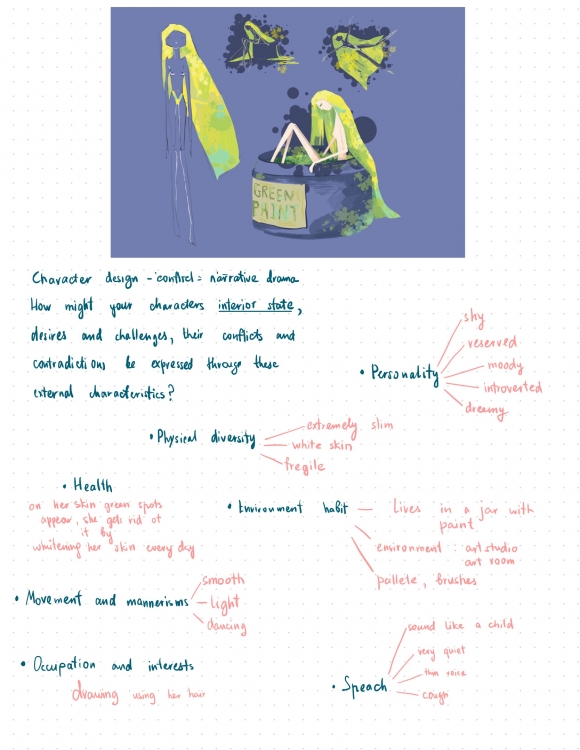 GREEN
PAINT
Character design - conflict = narrative drama
How might your characters interior state,
desires and challenges, their conflicts and
contradictions be expressed through these
external characteristics?
• Personality
shy
reserved
moody
introverted
dreamy
• Physical diversity
extremely slim
white skin
fregile
• Health
on her skin green spots
appear, she gets rid of
it by
whitening her skin every day
• Environment habit — Lives in a jar with
paint
environment: art studio
art room
pallete, brushes
• Movement and mannerisms
smooth
light
dancing
• Occupation and interests
drawing using her hair
• Speach
sound like a child
very quiet
thin voice
cough